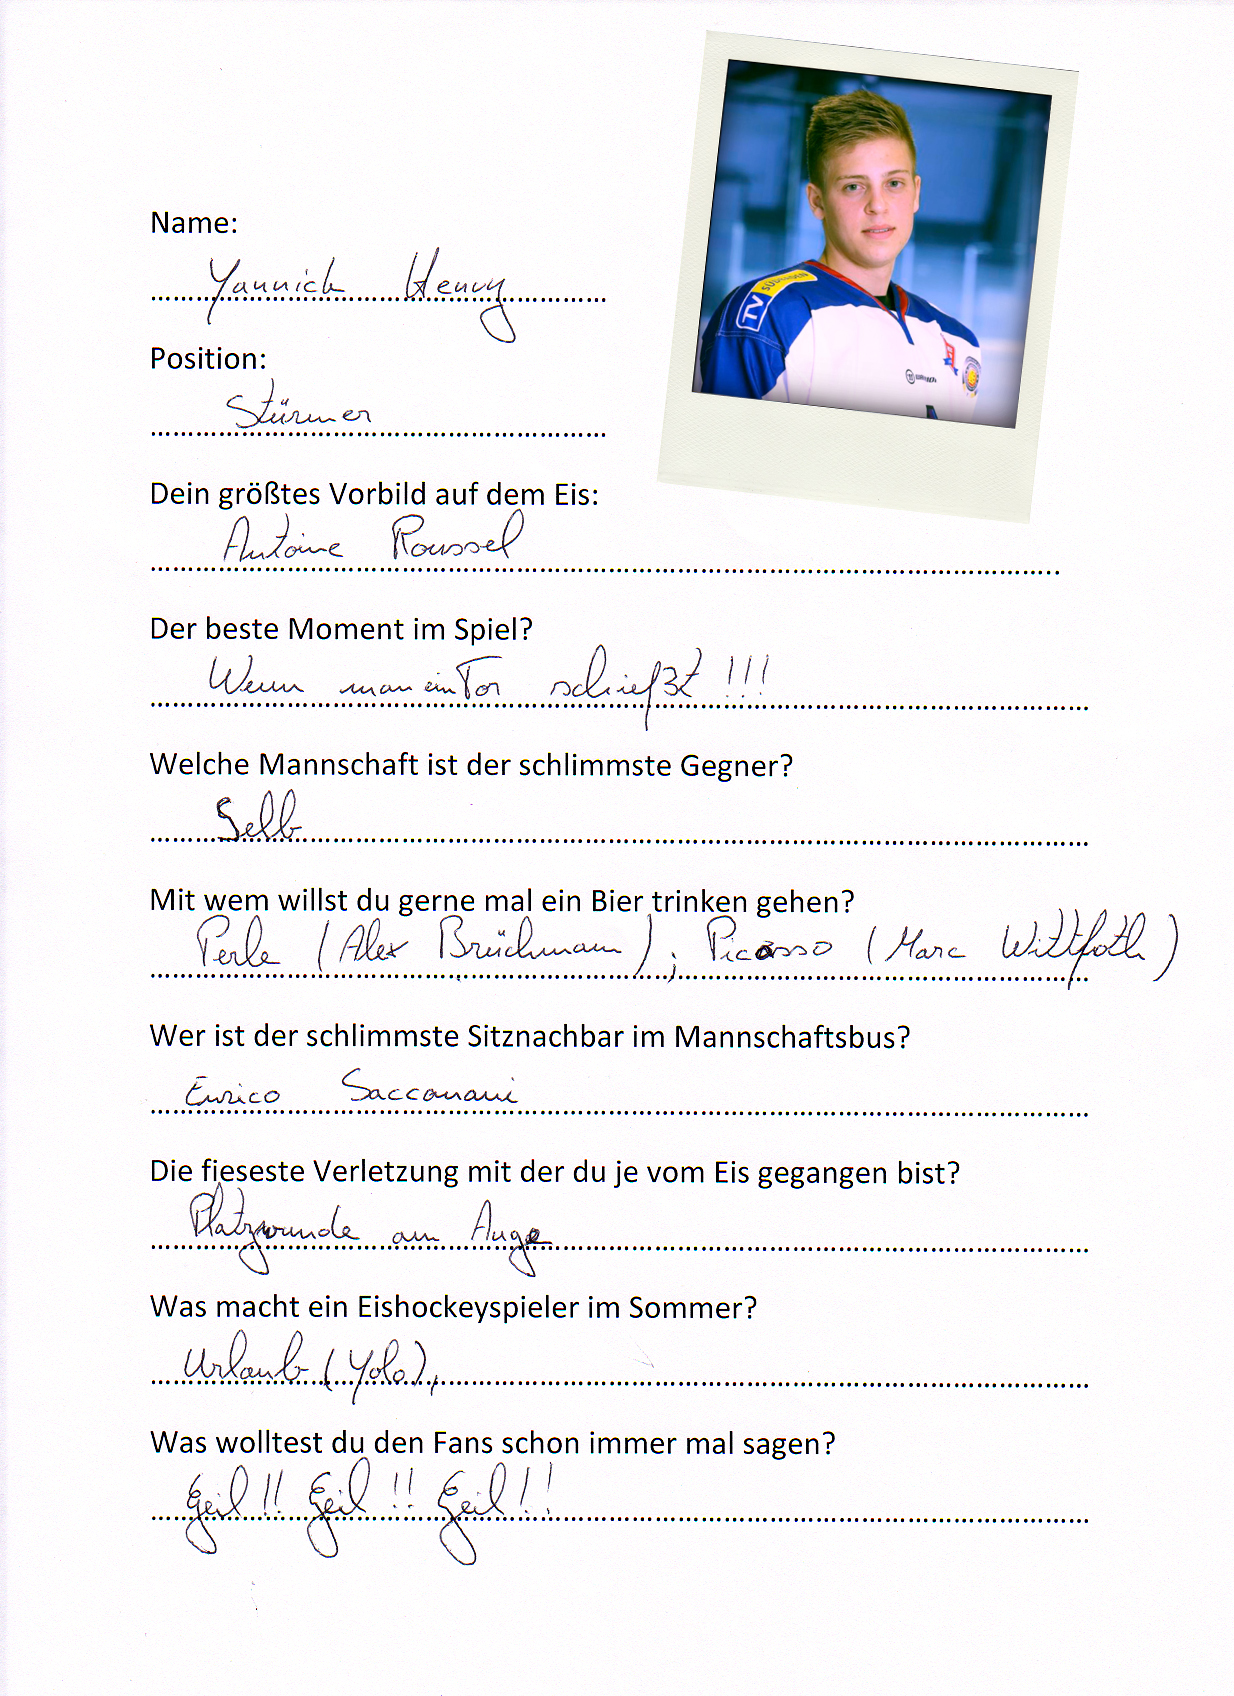 Name:
Yannick Henry
Position:
Stürmer
Dein größtes Vorbild auf dem Eis:
Antoine Roussel
Der beste Moment im Spiel?
Wenn man ein Tor schießt !!!
Welche Mannschaft ist der schlimmste Gegner?
Selb
Mit wem willst du gerne mal ein Bier trinken gehen?
Perle (Alex Brüchmann); Picasso (Marc Wittfoth)
Wer ist der schlimmste Sitznachbar im Mannschaftsbus?
Enrico Saccomani
Die fieseste Verletzung mit der du je vom Eis gegangen bist?
Platzwunde am Auge
Was macht ein Eishockeyspieler im Sommer?
Urlaub (Yolo),
Was wolltest du den Fans schon immer mal sagen?
Geil !! Geil !! Geil !!
TV SÜDBADEN